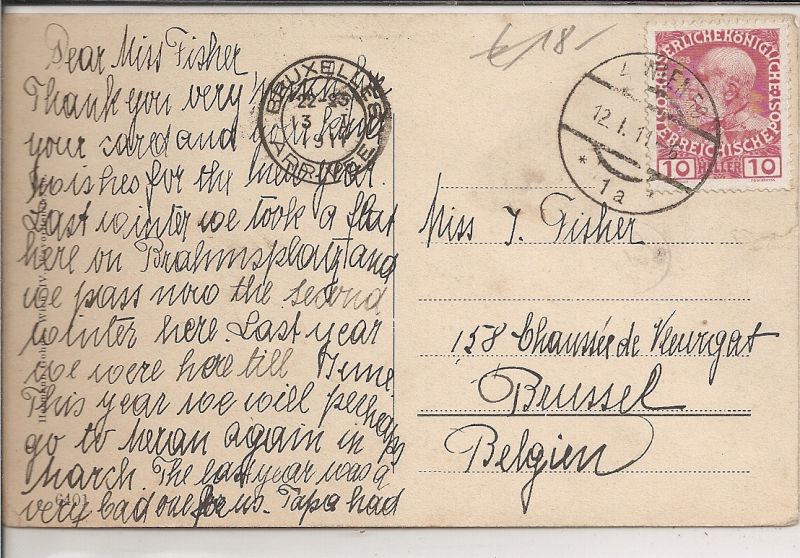 Dear Miss Fisher
Thank you very much for
your card and your kind
wishes for the new year.
Last winter we took a flat
here on Brahmsplatz and
we pass now the second
winter here. Last year
we were here till June
This year we will perhaps
go to Meran again in
March. The last year was a
very bad one for us. Papa had
6401
BRUXELLES
22-23
13 I
1911
ARRIVEE
18-
WIEN
12.I.11
* 1a *
KAISERLICHE KÖNIGLICHE
ÖSTERREICHISCHE POST
10 HELLER 10
Miss J. Fisher
158 Chaussée de Vleurgat
Brussel
Belgien